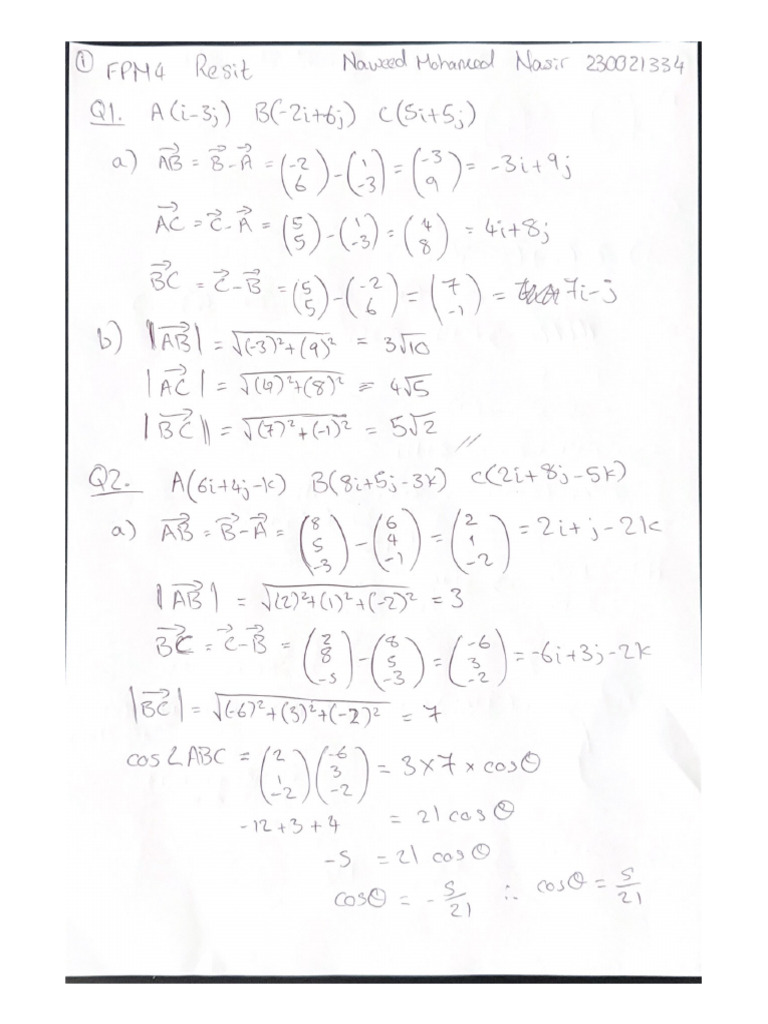 ① FPM4 Resit Naweed Mohamed Nasir 230021334
Q1. A(i-3j) B(-2i+6j) C(5i+5j)
a) \overrightarrow{AB} = \vec{B}-\vec{A} = \begin{pmatrix}-2\\6\end{pmatrix} - \begin{pmatrix}1\\-3\end{pmatrix} = \begin{pmatrix}-3\\9\end{pmatrix} = -3i+9j
\overrightarrow{AC} = \vec{C}-\vec{A} = \begin{pmatrix}5\\5\end{pmatrix} - \begin{pmatrix}1\\-3\end{pmatrix} = \begin{pmatrix}4\\8\end{pmatrix} = 4i+8j
\overrightarrow{BC} = \vec{C}-\vec{B} = \begin{pmatrix}5\\5\end{pmatrix} - \begin{pmatrix}-2\\6\end{pmatrix} = \begin{pmatrix}7\\-1\end{pmatrix} = 7i-j
b) |\overrightarrow{AB}| = √((-3)²+(9)²) = 3√10
|\overrightarrow{AC}| = √((4)²+(8)²) = 4√5
|\overrightarrow{BC}| = √((7)²+(-1)²) = 5√2 //
Q2. A(6i+4j-k) B(8i+5j-3k) C(2i+8j-5k)
a) \overrightarrow{AB} = \vec{B}-\vec{A} = \begin{pmatrix}8\\5\\-3\end{pmatrix} - \begin{pmatrix}6\\4\\-1\end{pmatrix} = \begin{pmatrix}2\\1\\-2\end{pmatrix} = 2i+j-2k
|\overrightarrow{AB}| = √((2)²+(1)²+(-2)²) = 3
\overrightarrow{BC} = \vec{C}-\vec{B} = \begin{pmatrix}2\\8\\-5\end{pmatrix} - \begin{pmatrix}8\\5\\-3\end{pmatrix} = \begin{pmatrix}-6\\3\\-2\end{pmatrix} = -6i+3j-2k
|\overrightarrow{BC}| = √((-6)²+(3)²+(-2)²) = 7
cos∠ABC = \begin{pmatrix}2\\1\\-2\end{pmatrix}\begin{pmatrix}-6\\3\\-2\end{pmatrix} = 3×7×cosθ
-12+3+4 = 21cosθ
-5 = 21 cosθ
cosθ = -5/21 ∴ cosθ = 5/21